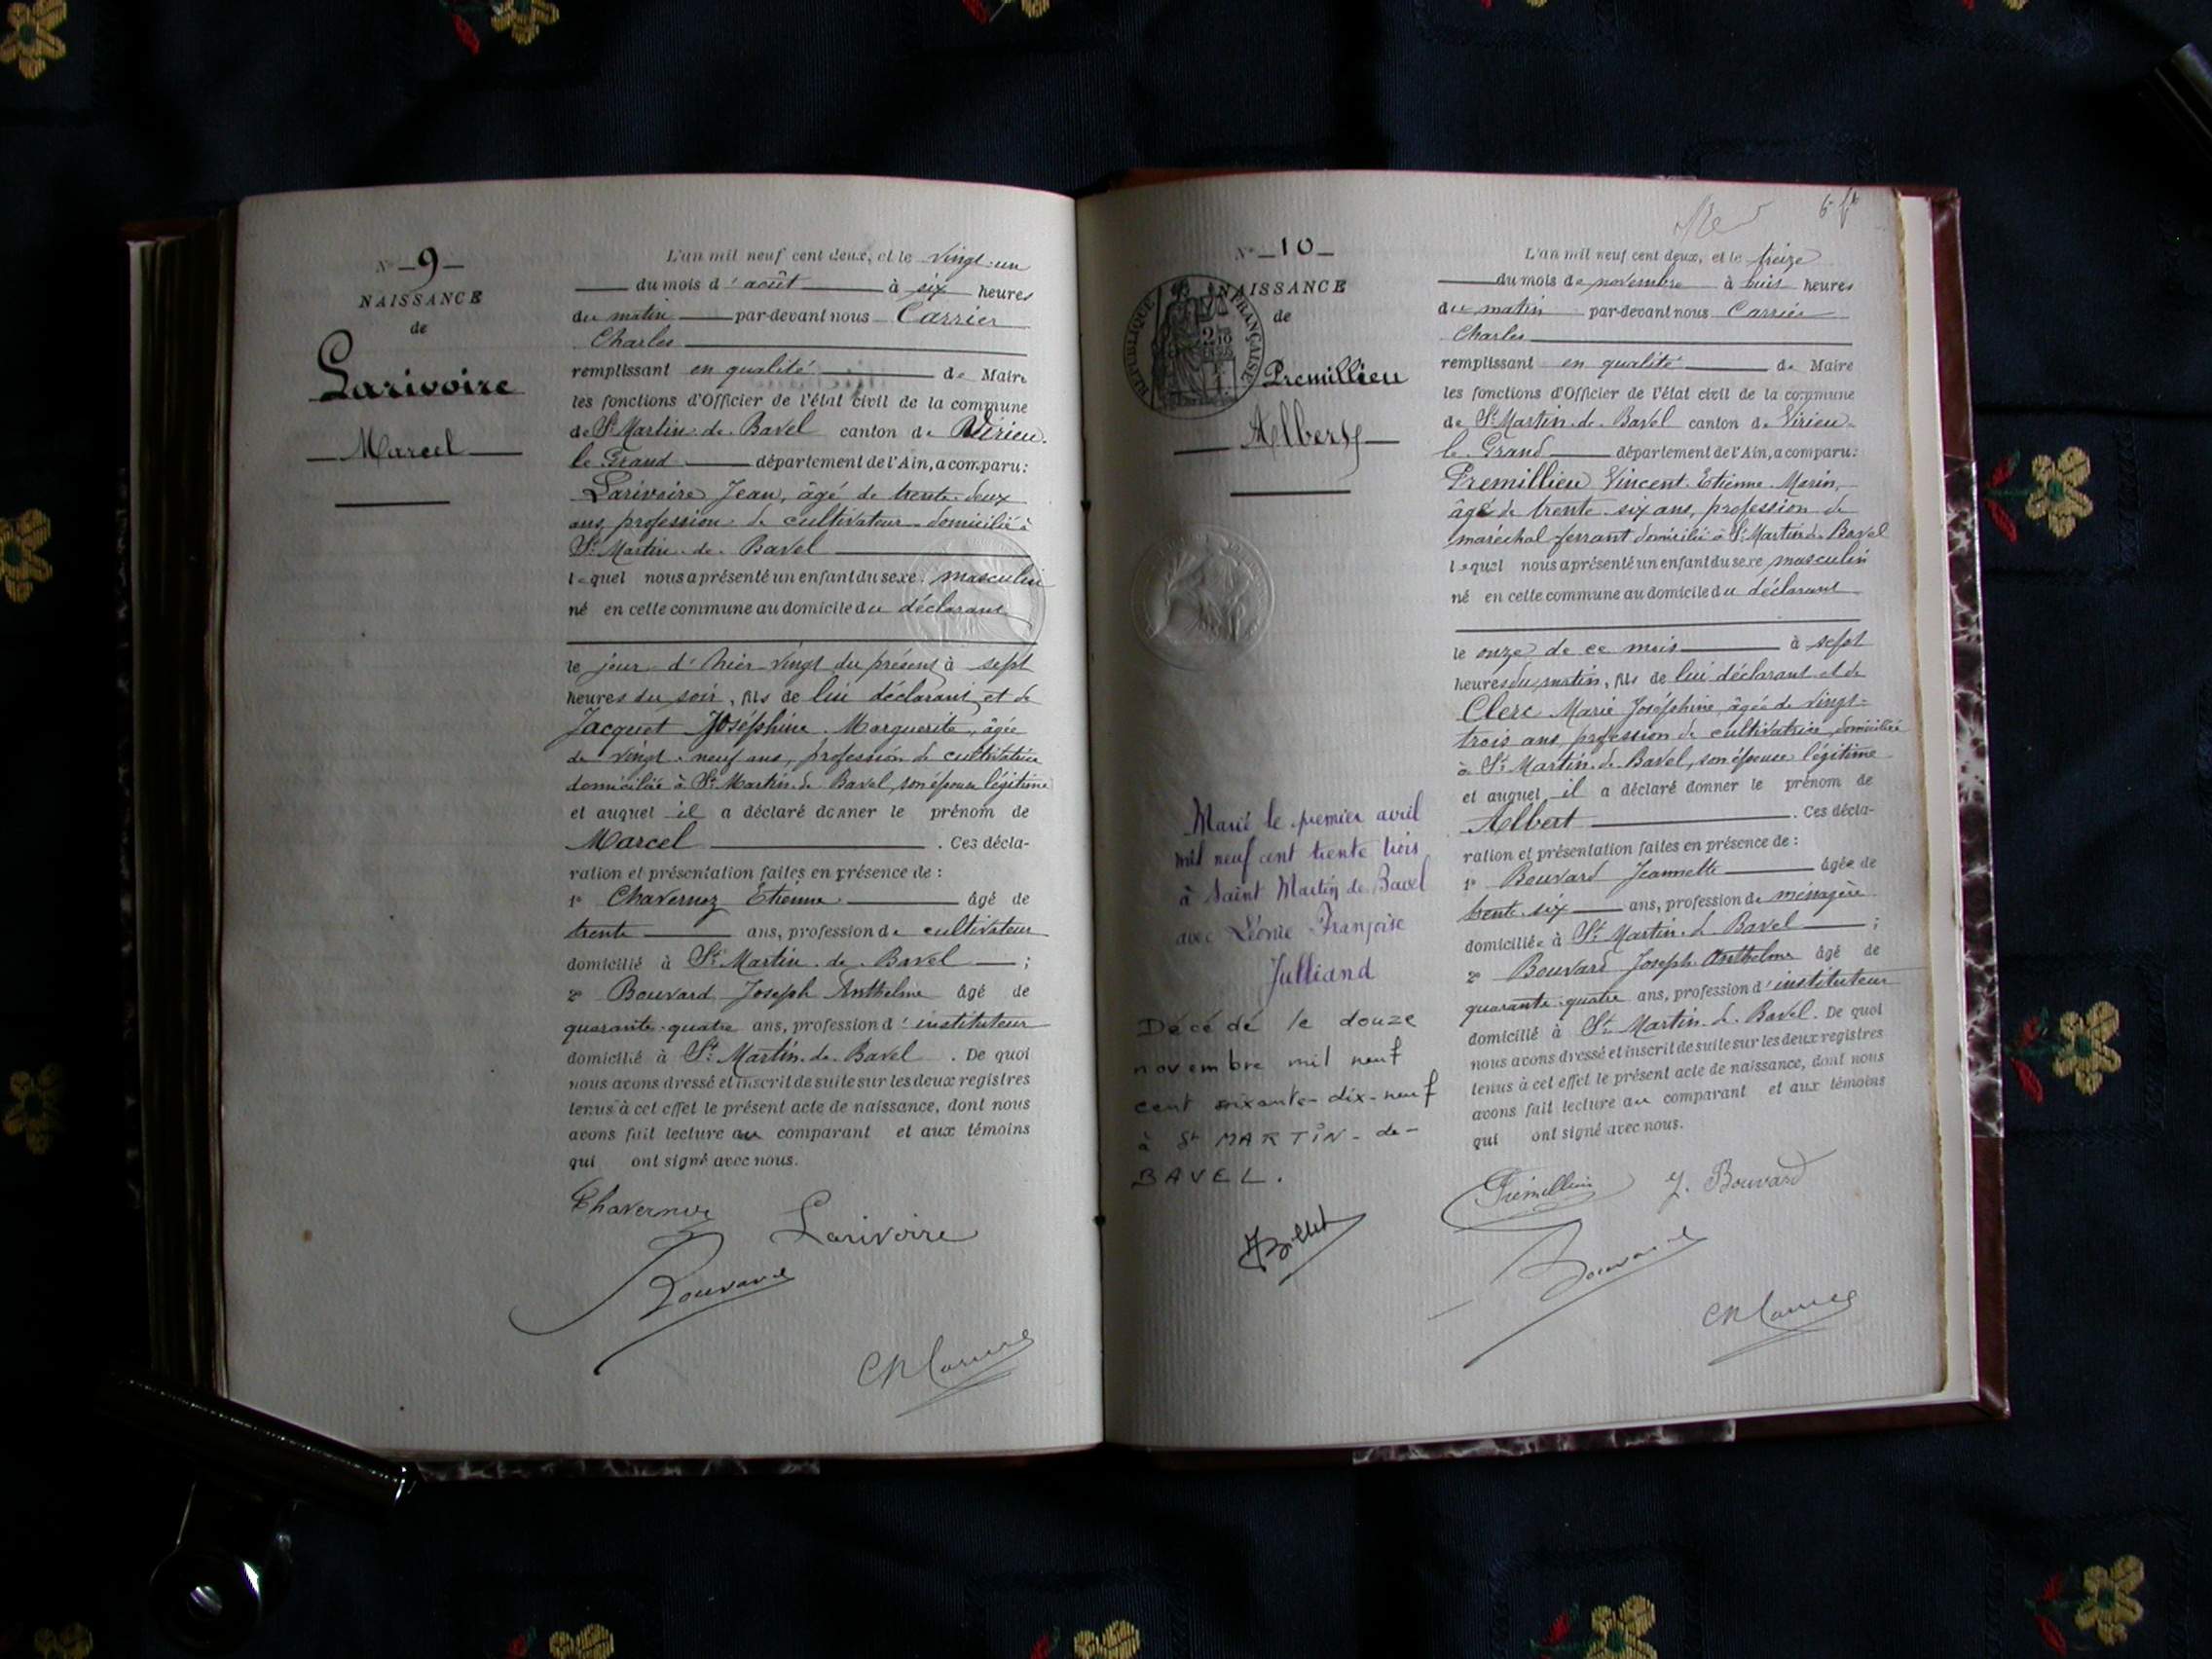 N° 9
NAISSANCE
de
Larivoire
Marcel
L'an mil neuf cent deux, et le vingt-un
du mois d'août à six heures
du matin par-devant nous Carrier
Charles
remplissant en qualité de Maire
les fonctions d'Officier de l'état civil de la commune
de St Martin-de-Bavel canton de Virieu-
le-Grand département de l'Ain, a comparu:
Larivoire Jean, âgé de trente-deux
ans, profession de cultivateur domicilié à
St Martin-de-Bavel
lequel nous a présenté un enfant du sexe masculin
né en cette commune au domicile du déclarant
le jour d'hier vingt du présent à sept
heures du soir, fils de lui déclarant et de
Jacquet Joséphine Marguerite, âgée
de vingt-neuf ans, profession de cultivatrice
domiciliée à St Martin-de-Bavel, son épouse légitime
et auquel il a déclaré donner le prénom de
Marcel. Ces décla-
ration et présentation faites en présence de :
1° Chavernoz Etienne âgé de
trente ans, profession de cultivateur
domicilié à St Martin-de-Bavel ;
2° Bouvard Joseph Anthelme âgé de
quarante-quatre ans, profession d'instituteur
domicilié à St Martin-de-Bavel. De quoi
nous avons dressé et inscrit de suite sur les deux registres
tenus à cet effet le présent acte de naissance, dont nous
avons fait lecture au comparant et aux témoins
qui ont signé avec nous.
Chavernoz
Larivoire
Bouvard
Ch Carrier
6
N° 10
NAISSANCE
de
RÉPUBLIQUE FRANÇAISE
Premillieu
Albert
Marié le premier avril
mil neuf cent trente trois
à Saint Martin de Bavel
avec Léonie Françoise
Julliand
Décédé le douze
novembre mil neuf
cent soixante-dix-neuf
à St MARTIN-de-
BAVEL.
Billet
L'an mil neuf cent deux, et le treize
du mois de novembre à huit heures
du matin par-devant nous Carrier
Charles
remplissant en qualité de Maire
les fonctions d'Officier de l'état civil de la commune
de St Martin-de-Bavel canton de Virieu-
le-Grand département de l'Ain, a comparu:
Premillieu Vincent Etienne Marin,
âgé de trente-six ans, profession de
maréchal ferrant domicilié à St Martin-de-Bavel
lequel nous a présenté un enfant du sexe masculin
né en cette commune au domicile du déclarant
le onze de ce mois à sept
heures du matin, fils de lui déclarant et de
Clerc Marie Joséphine, âgée de vingt-
trois ans, profession de cultivatrice, domiciliée
à St Martin-de-Bavel, son épouse légitime
et auquel il a déclaré donner le prénom de
Albert. Ces décla-
ration et présentation faites en présence de :
1° Bouvard Jeannette âgée de
trente-six ans, profession de ménagère
domiciliée à St Martin-de-Bavel ;
2° Bouvard Joseph Anthelme âgé de
quarante-quatre ans, profession d'instituteur
domicilié à St Martin-de-Bavel. De quoi
nous avons dressé et inscrit de suite sur les deux registres
tenus à cet effet le présent acte de naissance, dont nous
avons fait lecture au comparant et aux témoins
qui ont signé avec nous.
Premillieu J. Bouvard
Bouvard
Ch Carrier